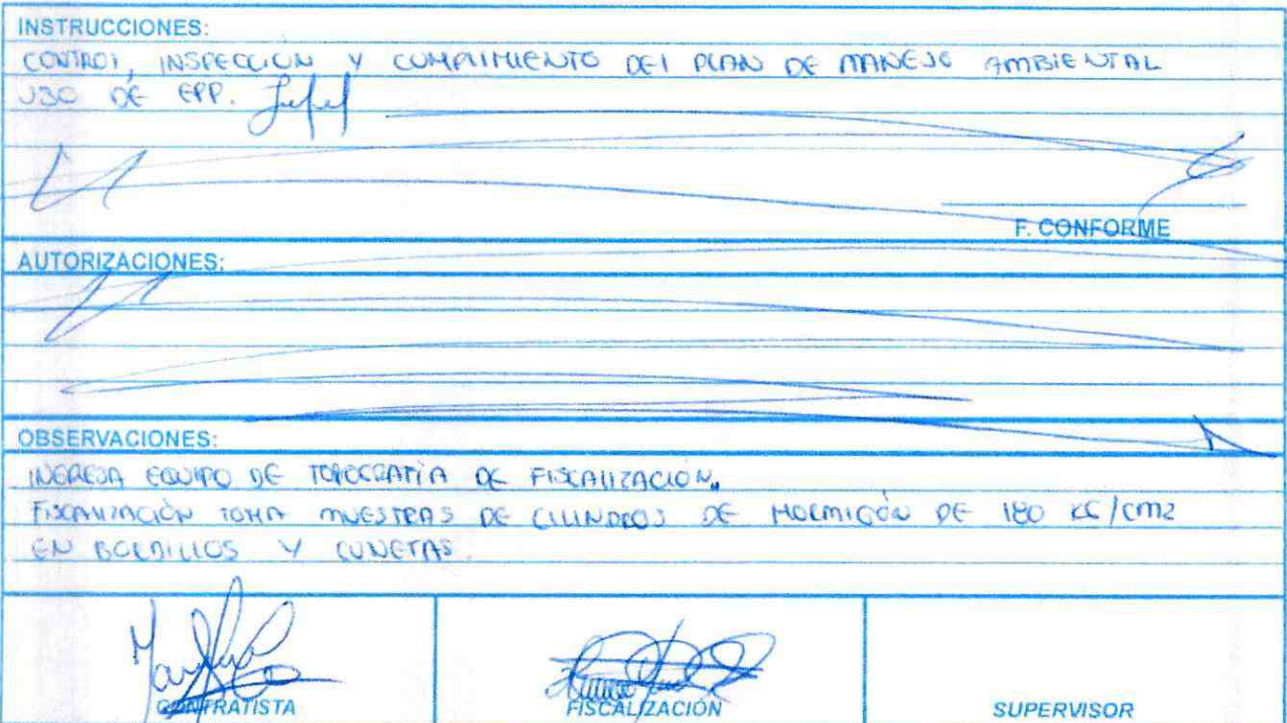 INSTRUCCIONES:
CONTROL, INSPECCIÓN Y CUMPLIMIENTO DEL PLAN DE MANEJO AMBIENTAL
USO DE EPP.
F. CONFORME
AUTORIZACIONES:
OBSERVACIONES:
INGRESA EQUIPO DE TOPOGRAFÍA DE FISCALIZACIÓN.
FISCALIZACIÓN TOMA MUESTRAS DE CILINDROS DE HORMIGÓN DE 180 KG/CM2
EN BORDILLOS Y CUNETAS.
CONTRATISTA FISCALIZACIÓN SUPERVISOR